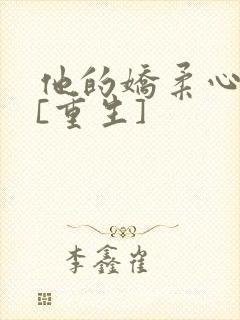 他的娇柔心
[重生]
李鑫雀